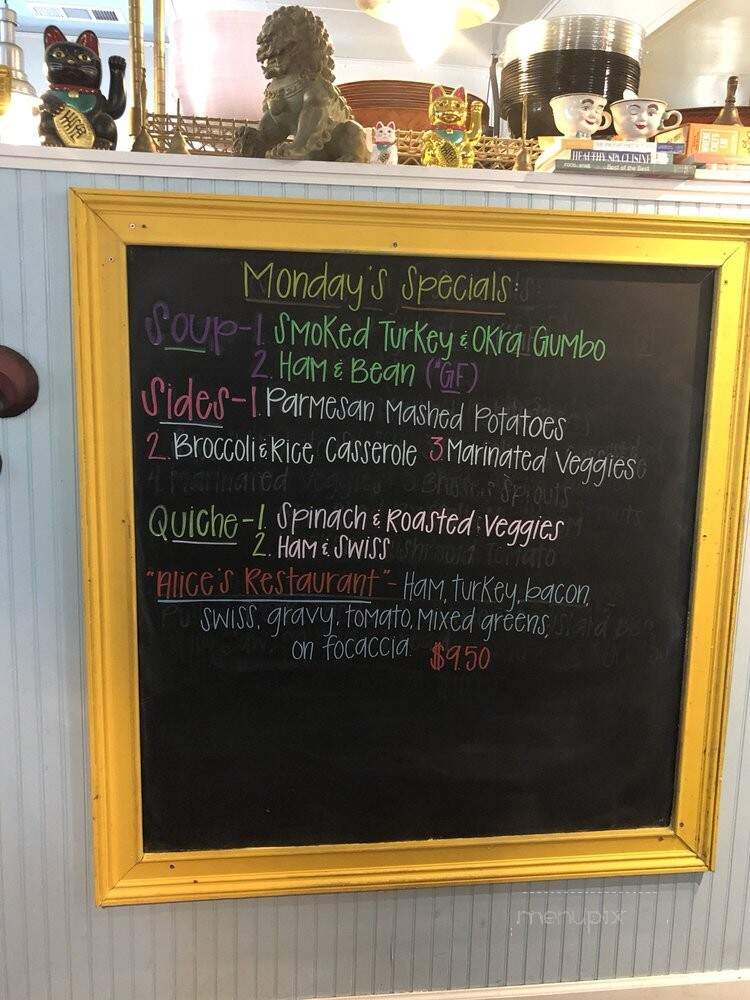 HEALTHY SPA CUISINE
Best of the Best
Monday's Specials:
Soup-1. Smoked Turkey & Okra Gumbo
2. Ham & Bean (*GF)
Sides-1. Parmesan Mashed Potatoes
2. Broccoli & Rice Casserole 3 Marinated Veggies
Quiche-1. Spinach & Roasted Veggies
2. Ham & Swiss
"Alice's Restaurant"- Ham, turkey, bacon,
swiss, gravy, tomato, mixed greens,
on focaccia. $9.50
menupix